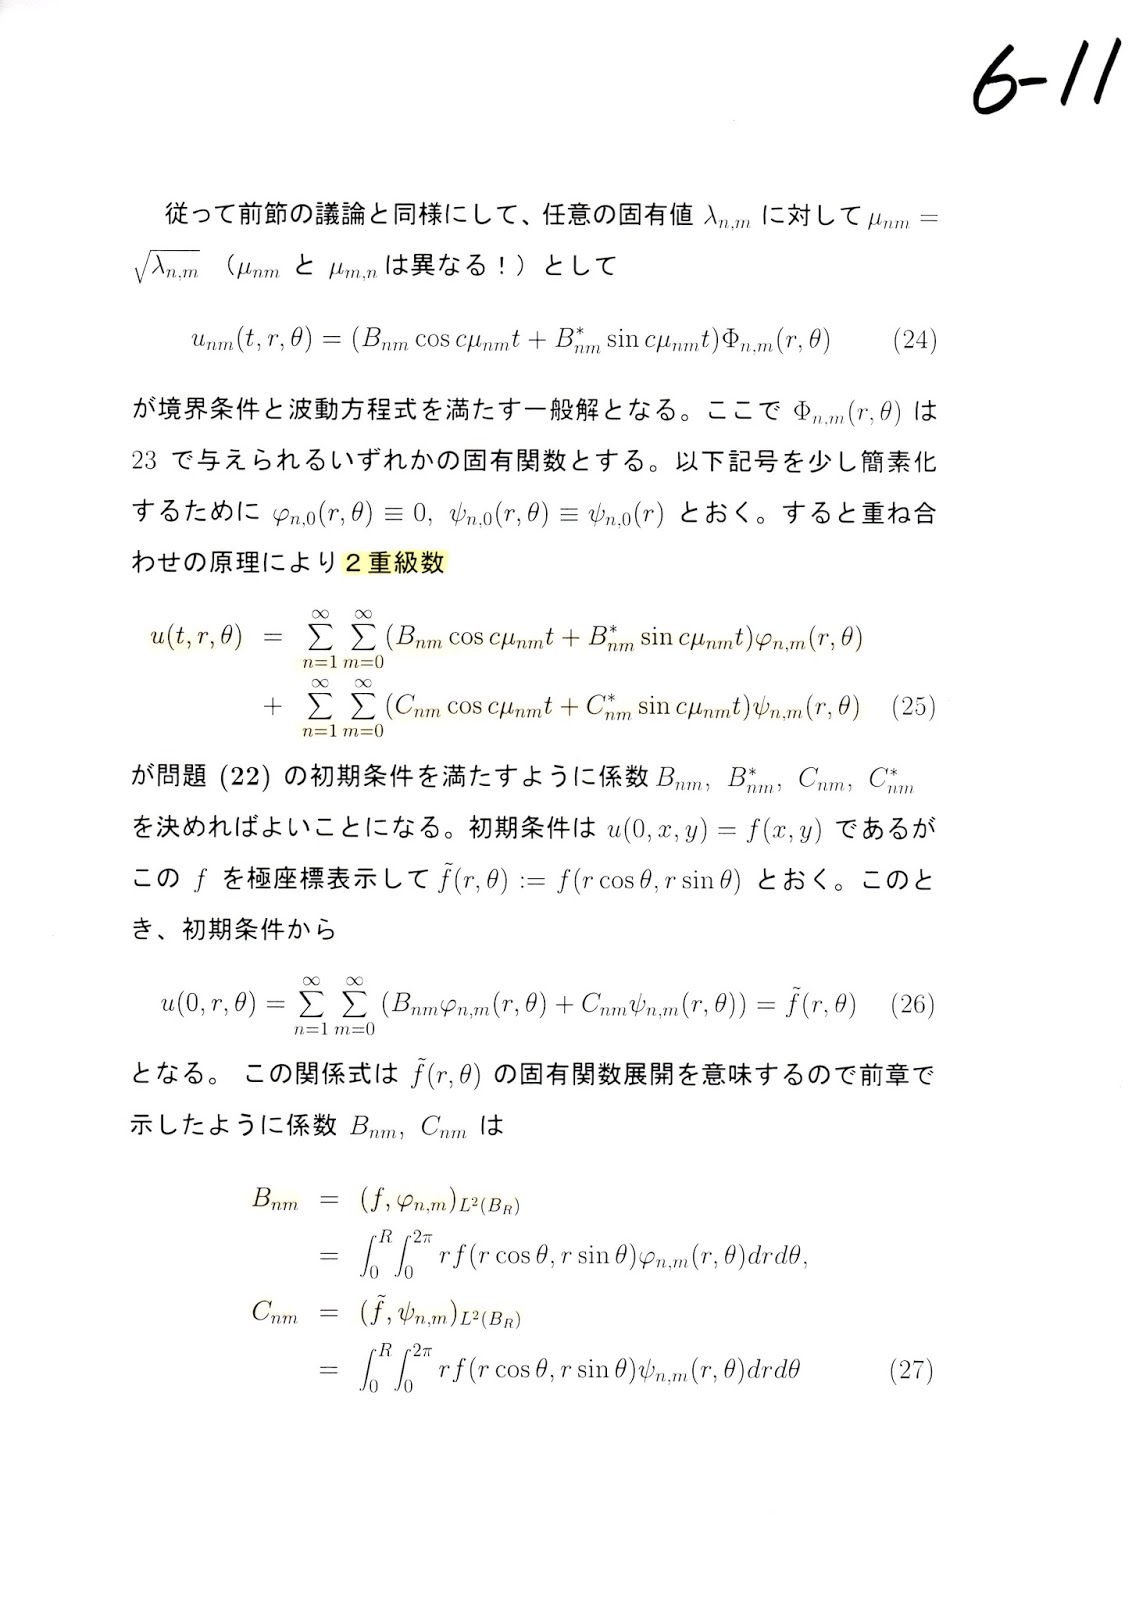 6-11
従って前節の議論と同様にして、任意の固有値 λ_{n,m} に対して μ_{nm} =
√λ_{n,m} （μ_{nm} と μ_{m,n} は異なる！）として
u_{nm}(t, r, θ) = (B_{nm} cos cμ_{nm}t + B^*_{nm} sin cμ_{nm}t)Φ_{n,m}(r, θ) (24)
が境界条件と波動方程式を満たす一般解となる。ここで Φ_{n,m}(r, θ) は
23 で与えられるいずれかの固有関数とする。以下記号を少し簡素化
するために φ_{n,0}(r, θ) ≡ 0, ψ_{n,0}(r, θ) ≡ ψ_{n,0}(r) とおく。すると重ね合
わせの原理により２重級数
u(t, r, θ) = ∑_{n=1}^{∞} ∑_{m=0}^{∞} (B_{nm} cos cμ_{nm}t + B^*_{nm} sin cμ_{nm}t)φ_{n,m}(r, θ)
+ ∑_{n=1}^{∞} ∑_{m=0}^{∞} (C_{nm} cos cμ_{nm}t + C^*_{nm} sin cμ_{nm}t)ψ_{n,m}(r, θ) (25)
が問題 (22) の初期条件を満たすように係数 B_{nm}, B^*_{nm}, C_{nm}, C^*_{nm}
を決めればよいことになる。初期条件は u(0, x, y) = f(x, y) であるが
この f を極座標表示して f̃(r, θ) := f(r cos θ, r sin θ) とおく。このと
き、初期条件から
u(0, r, θ) = ∑_{n=1}^{∞} ∑_{m=0}^{∞} (B_{nm}φ_{n,m}(r, θ) + C_{nm}ψ_{n,m}(r, θ)) = f̃(r, θ) (26)
となる。 この関係式は f̃(r, θ) の固有関数展開を意味するので前章で
示したように係数 B_{nm}, C_{nm} は
B_{nm} = (f, φ_{n,m})_{L²(B_R)}
= ∫_0^R ∫_0^{2π} rf(r cos θ, r sin θ)φ_{n,m}(r, θ)drdθ,
C_{nm} = (f̃, ψ_{n,m})_{L²(B_R)}
= ∫_0^R ∫_0^{2π} rf(r cos θ, r sin θ)ψ_{n,m}(r, θ)drdθ (27)